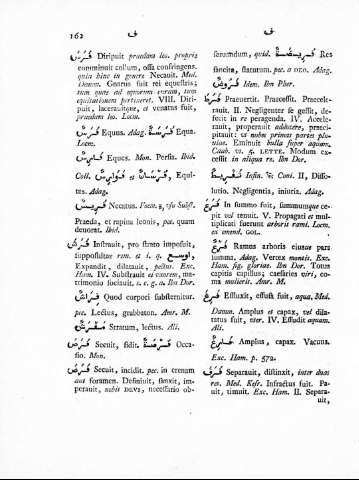 162
ف
فَرَسَ Diripuit praedam leo. propriè
comminuit collum, ossa confringens.
quia hinc in genere Necavit. Med.
Gnarus fuit rei equestris;
tum quæ ad
equitationem pertineret. VIII. Diri-
puit, laceravitque, et venatus fuit,
praedam leo. Locm.
فَرَسٌ Equus. Adag. فَرَسَةٌ Equa.
Locm.
فَارِسٌ Eques. Mon. Persa. Ibid.
Coll. فُرْسَانٌ et فَوَارِسُ, Equi-
tes. Adag.
فَرِيسٌ Necatus. Foem. ة,
Praeda, et rapina leonis, pec. quam
devorat. Ibid.
فَرَشَ Instravit, pro strato imposuit,
suppositus ve ram. et i. q. اوسع,
Expandit, dilatavit, pectus. Exc.
Ham. IV. Substravit et uxorem, ma-
trimonio sociavit. s. r. g. a. Ibn Dor.
فِرَاشٌ Quod corpori substernitur.
pec. Lectus, grabbatus. Amr. M.
مَفْرَشٌ Stratum, lectus. Ali.
فَرَصَ Secuit, fidit. فُرْصَةٌ Occa-
sio. Mon.
فَرَضَ Secuit, incidit. pec. in crenam
aut foramen. Definiuit, sanxit, im-
peravit, nobis DEUS, necessario ob-
ف
servandum, quid. فَرِيضَةٌ Res
sancita, statutum. pec. a DEO. Adag.
فُرُوضٌ Idem. Ibn Plur.
فَرَطَ Praevertit. Praecessit. Praecele-
ravit. II. Negligenter se gessit, de-
fecit in re peraganda. IV. Accele-
ravit, properanit adducere, praeci-
pitavit: ut nubes primas partes plu-
uiae. Eminuit bulla super aquam.
Caab. vi. 5. LETTE. Modum ex-
cessit in aliqua re. Ibn Dor.
تَفْرِيطٌ Infin. Coni. II, Disso-
lutio. Negligentia, iniuria. Adag.
فَرَعَ In summo fuit, summumque ce-
pit vel tenuit. V. Propagati et mul-
tiplicati fuerunt arboris rami. Locm.
ex emend. GOL.
فَرْعٌ Ramus arboris eiusve pars
summa. Adag. Vertex montis, Exc.
Ham. fig. gloriae. Ibn Dor. Totus
capitis capillus; caesaries viri, co-
ma mulieris. Amr. M.
فَرَغَ Effluxit, effusa fuit, aqua, Med.
Damm. Amplus et capax, vel dila-
tatus fuit, vter. IV. Effudit aquam.
Ali.
فَارِغٌ Amplus, capax. Vacuus.
Exc. Ham. p. 572.
فَرَقَ Separauit, distinxit, inter duas
res. Med. Kesr. Infractus fuit. Pa-
uit, timuit. Exc. Ham. II. Separa-
uit,